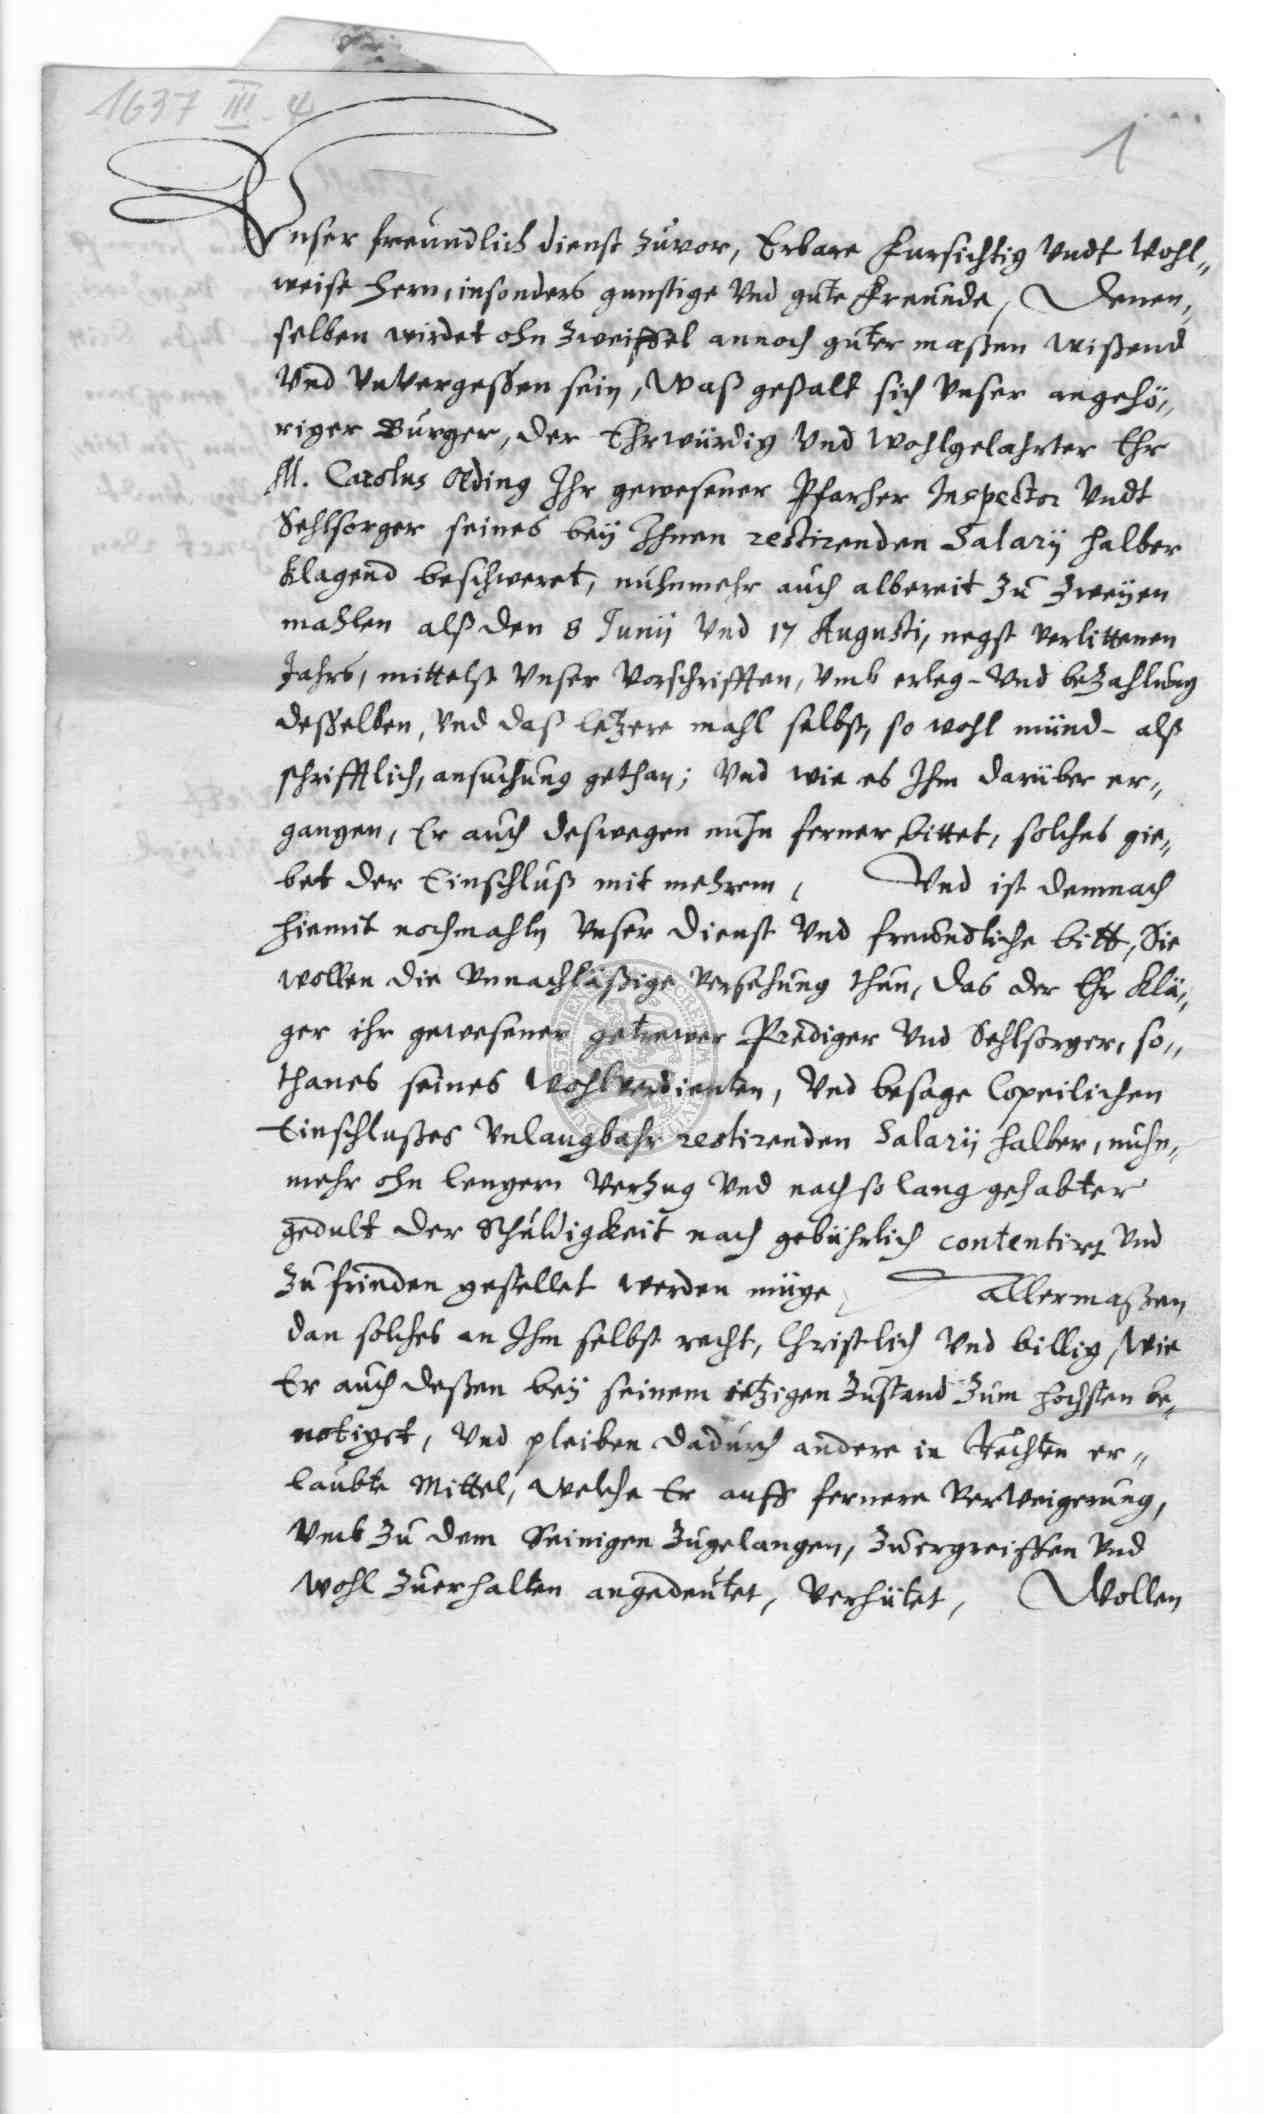 1637 III. 4
1
Unser freundlich dienst zuvor, Erbare Fursichtig Undt Wohl„
weise Hern, insonders gunstige Und gute Freunde, Denen„
selben wirdet ohn Zweiffel annoch guter maßen wißend
Und Unvergeßen sein, Waß gestalt sich Unser angehö„
riger Burger, der Ehrwürdig Und Wohlgelahrter Ehr
M. Carolus Olding Ihr gewesener Pfarher Inspector Undt
Sehlsorger seines beÿ Ihnen restirenden Salarÿ halber
klagend beschweret, nuhnmehr auch albereit zu zweÿen
mahlen alß den 8 Junÿ Und 17 Augusti, negst verlittenen
Jahrs, mittelst Unser Vorschrifften, Umb erleg- Und bezahlung
deßelben, Und daß letzere mahl selbst, so wohl münd- alß
schrifftlich, ansuchung gethan; Und wie es Ihm darüber er„
gangen, Er auch deswegen nuhn ferner bittet, solches gie„
bet der Einschluß mit mehrem, Und ist demnach
hiemit nochmahln Unser dienst Und freundliche bitt, Sie
wollen die Unnachläßige Versehung thun, das der Ehr Klä„
ger ihr gewesener getrewer Prediger Und Sehlsorger, so„
thanes seines Wohlverdienten, Und besage Copeilichen
Einschlußes Unlaugbahr restirenden Salarÿ halber, nuhn„
mehr ohn lengern Verzug Und nach so lang gehabter
gedult der Schuldigkeit nach gebührlich contentirt Und
zu frieden gestellet werden müge, Allermaßen
dan solches an Ihm selbst recht, Christlich Und billig, Wie
Er auch deßen beÿ seinem ietzigen Zustand zum hochsten be„
notigst, Und pleiben dadurch andere in Rechten er„
laubte Mittel, Welche Er auff fernere Verweigerung,
Umb zu dem Seinigen zugelangen, zuergreiffen Und
Wohl zuerhalten angedeutet, Verhütet, Wollen